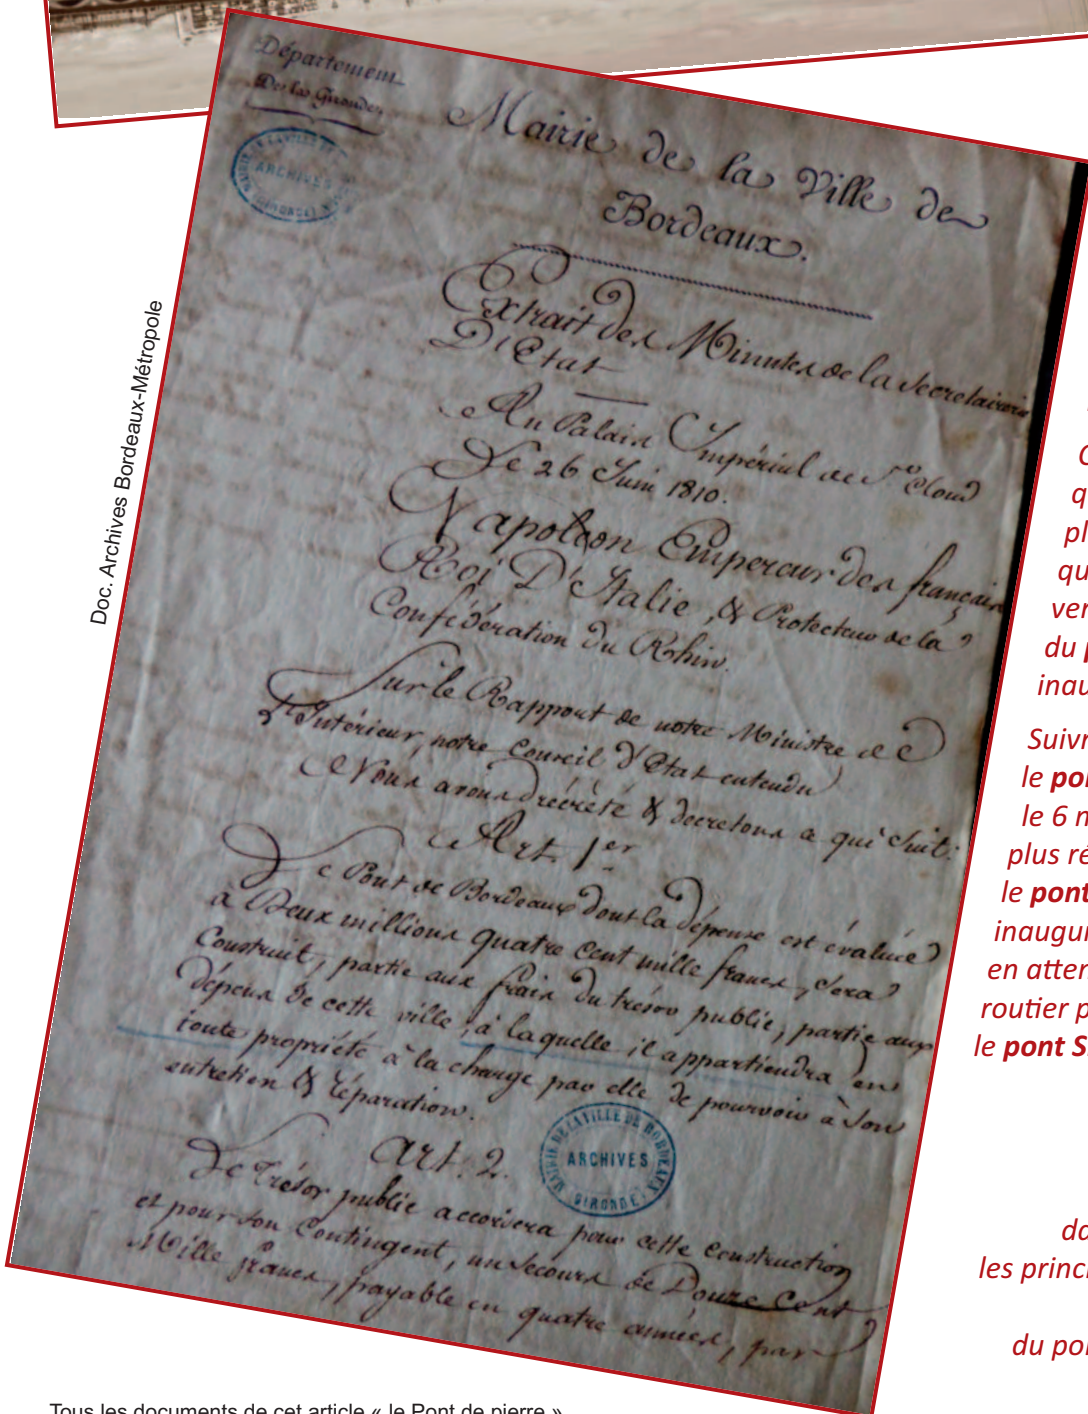 Département
De la Gironde
MAIRIE DE LA VILLE DE
ARCHIVES
(GIRONDE)
Mairie de la Ville de
Bordeaux.
Extrait des Minutes de la Secretairerie
D'Etat
Au Palais Impérial de St Cloud
Le 26 Juin 1810.
Napoléon Empereur des français
Roi D'Italie, & Protecteur de la
Confédération du Rhin.
Sur le Rapport de notre Ministre de
L'Intérieur, notre Conseil d'Etat entendu
Nous avons décrété & decretons ce qui suit:
Art. 1er
Le Pont de Bordeaux dont la dépense est évaluée
à Deux millions quatre cent mille francs, sera
Construit, partie aux frais du trésor public, partie aux
dépens de cette ville, à laquelle il appartiendra en
toute propriété à la charge par elle de pourvoir à son
entretien & réparation.
MAIRIE DE LA VILLE DE BORDEAUX
ARCHIVES
(GIRONDE)
Art. 2.
Le Trésor public accordera pour cette construction
et pour son Contingent, un secours de Douze Cent
Mille francs, payable en quatre années, par
Doc. Archives Bordeaux-Métropole
pl
qu
ver
du p
inau
Suivr
le pon
le 6 m
plus ré
le pont
inaugur
en atten
routier p
le pont S
da
les princi
du pon
Tous les documents de cet article « le Pont de pierre »